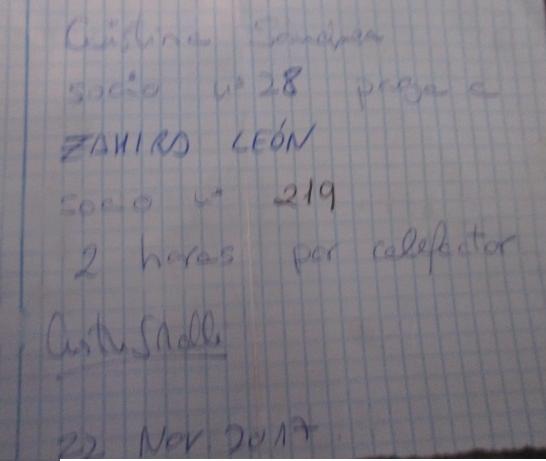 Cristina
socio nº 28 paga a
ZAHIRA LEÓN
socio nº 219
2 horas por calefactor
22 Nov 2017